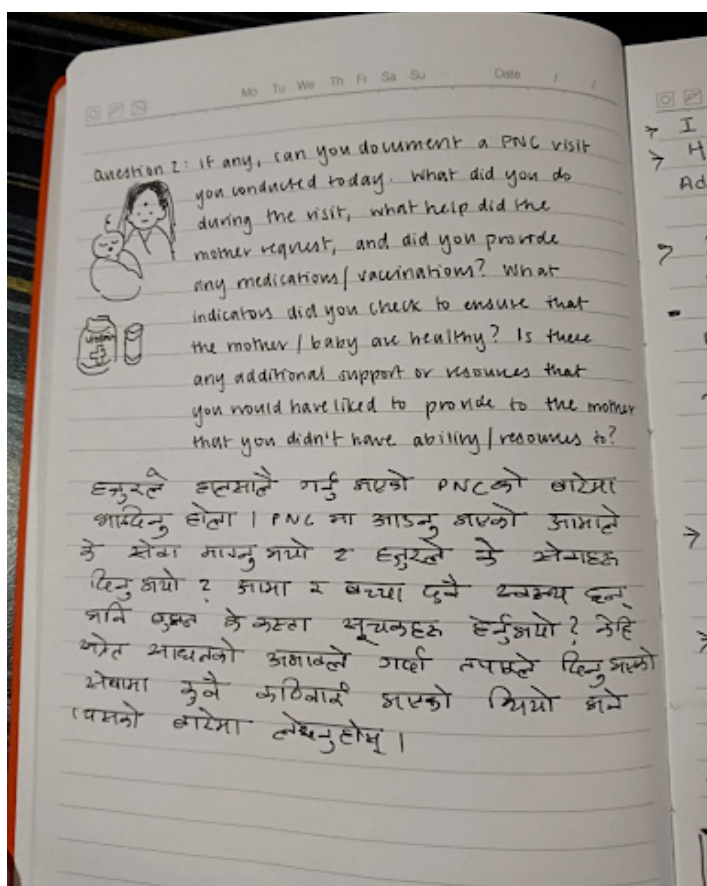 Mo Tu We Th Fr Sa Su Date / /
Question 2: If any, can you document a PNC visit
you conducted today. What did you do
during the visit, what help did the
mother request, and did you provide
any medications/vaccinations? What
indicators did you check to ensure that
the mother/baby are healthy? Is there
any additional support or resources that
you would have liked to provide to the mother
that you didn't have ability/resources to?
हजुरले हालसालै गर्नु भएको PNC को बारेमा
भनिदिनु होला । PNC मा आउनु भएको आमाले
के सेवा माग्नु भयो र हजुरले के सेवाहरु
दिनु भयो ? आमा र बच्चा दुवै स्वस्थ्य छन्
भनि बुझ्न के कस्ता सूचकहरु हेर्नुभयो ? केहि
स्रोत साधनको अभावले गर्दा तपाईले दिनु भएको
सेवामा कुनै कठिनाई भएको थियो भने
त्यसको बारेमा लेख्नुहोस् ।
I
H
Ad